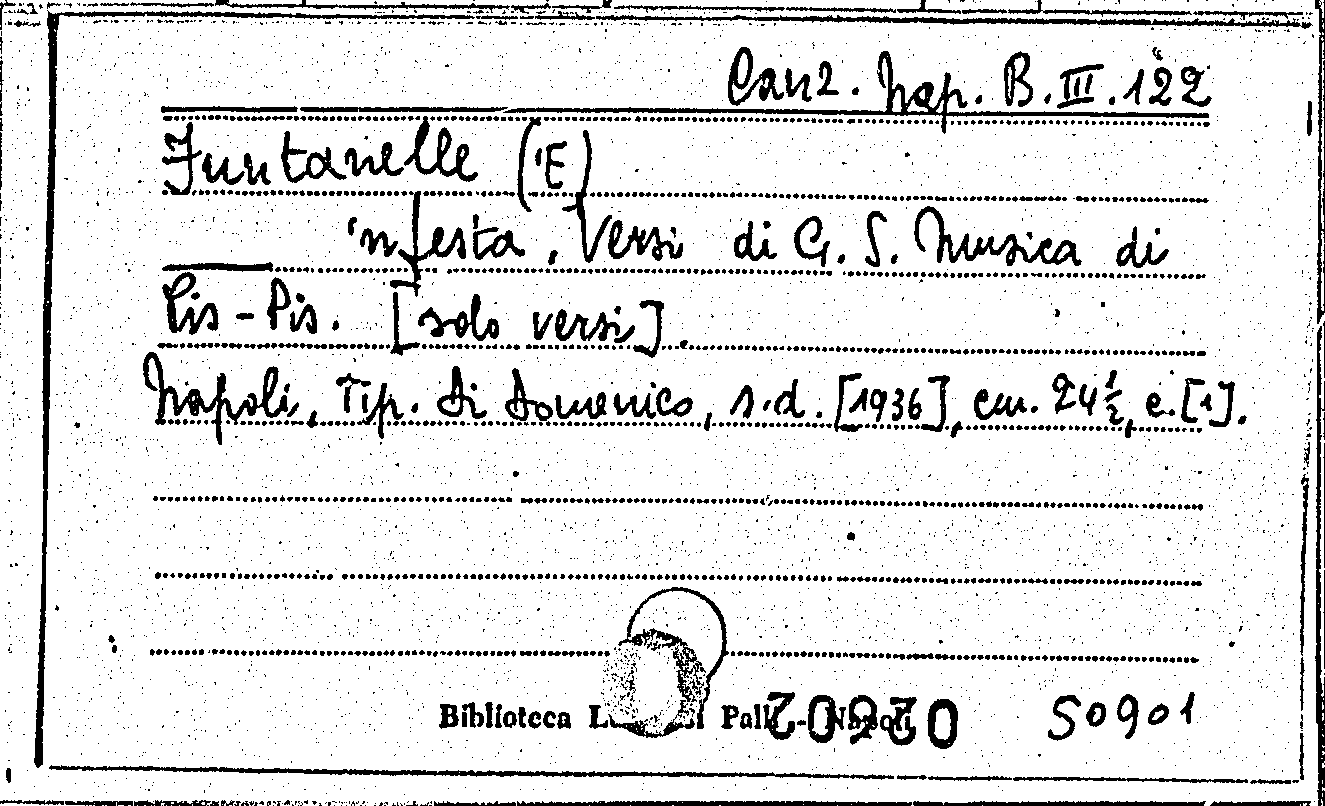 Canz. Nap. B. III. 122
Funtanelle ('E)
'nfesta. Versi di G. S. Musica di
Pis-Pis. [solo versi].
Napoli, Tip. Di Domenico, s.d. [1936], cm. 24½, c. [1].
Biblioteca Napoli
S0901